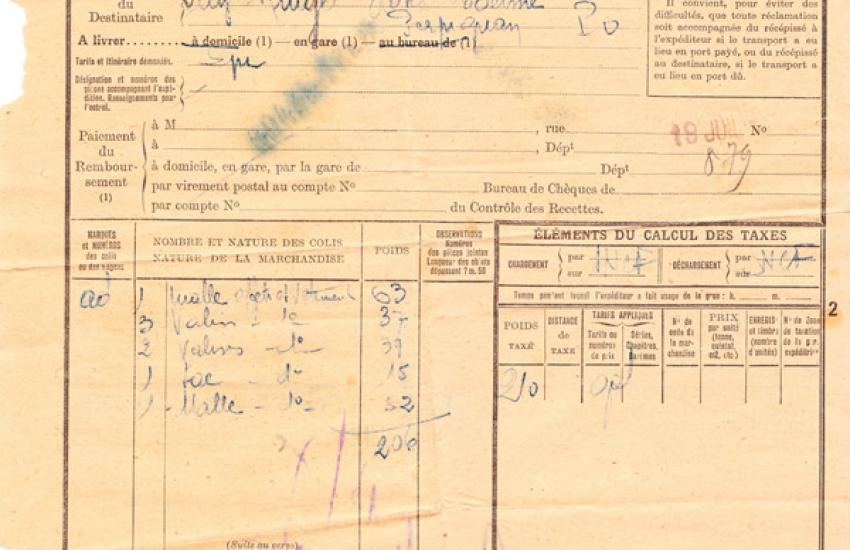 du
Destinataire
Perpignan P O
A livrer à domicile (1) — en gare (1) — au bureau de (1)
Tarifs et itinéraire demandés.
Désignation et numéros des
pièces accompagnant l'expé-
dition. Renseignements pour
l'octroi.
Il convient, pour éviter des
difficultés, que toute réclamation
soit accompagnée du récépissé à
l'expéditeur si le transport a eu
lieu en port payé, ou du récépissé
au destinataire, si le transport a
eu lieu en port dû.
Paiement
du
Rembour-
sement
(1)
à M , rue Nº
à , Dépt
19 JUI
879
à domicile, en gare, par la gare de Dépt
par virement postal au compte Nº Bureau de Chèques de
par compte Nº du Contrôle des Recettes.
MARQUES
et NUMÉROS
des colis
ou des wagons
NOMBRE ET NATURE DES COLIS
NATURE DE LA MARCHANDISE
POIDS
OBSERVATIONS
Numéros
des pièces jointes
Longueur des objets
dépassant 7 m. 50
ad 1 malle 63
3 Valises dº 37
2 Valises dº 39
1 Sac dº 15
1 Malle dº 52
206
(Suite au verso)
ÉLÉMENTS DU CALCUL DES TAXES
CHARGEMENT par sur
DÉCHARGEMENT par sur
Temps pendant lequel l'expéditeur a fait usage de la grue : h. m.
POIDS
TAXÉ
DISTANCE
de
TAXE
TARIFS APPLIQUÉS
Tarifs ou
numéros
de prix
Séries,
Chapitres,
Barèmes
Nº de
code de la
mar-
chandise
PRIX
par unité
(tonne,
quintal,
m2, etc.)
ENREGIS-
et timbre
(nombre
d'unités)
Nº de Zone
de taxation
de la g.
expéditri
210
2